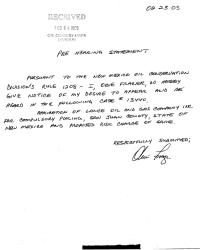 02.23.05
RECEIVED
FEB 24 2005
OIL CONSERVATION
DIVISION
PRE HEARING STATEMENT
PURSUANT TO THE NEW MEXICO OIL CONSERVATION
DIVISION'S RULE 1208 - I, OBIE FRAZIER, DO HEREBY
GIVE NOTICE OF MY DESIRE TO APPEAR AND BE
HEARD IN THE FOLLOWING CASE # 13440.
APPLICATION OF LANCE OIL AND GAS COMPANY INC.
FOR COMPULSORY POOLING, SAN JUAN COUNTY, STATE OF
NEW MEXICO AND PROPOSED RISK CHARGE OF SAME.
RESPECTFULLY SUBMITTED;